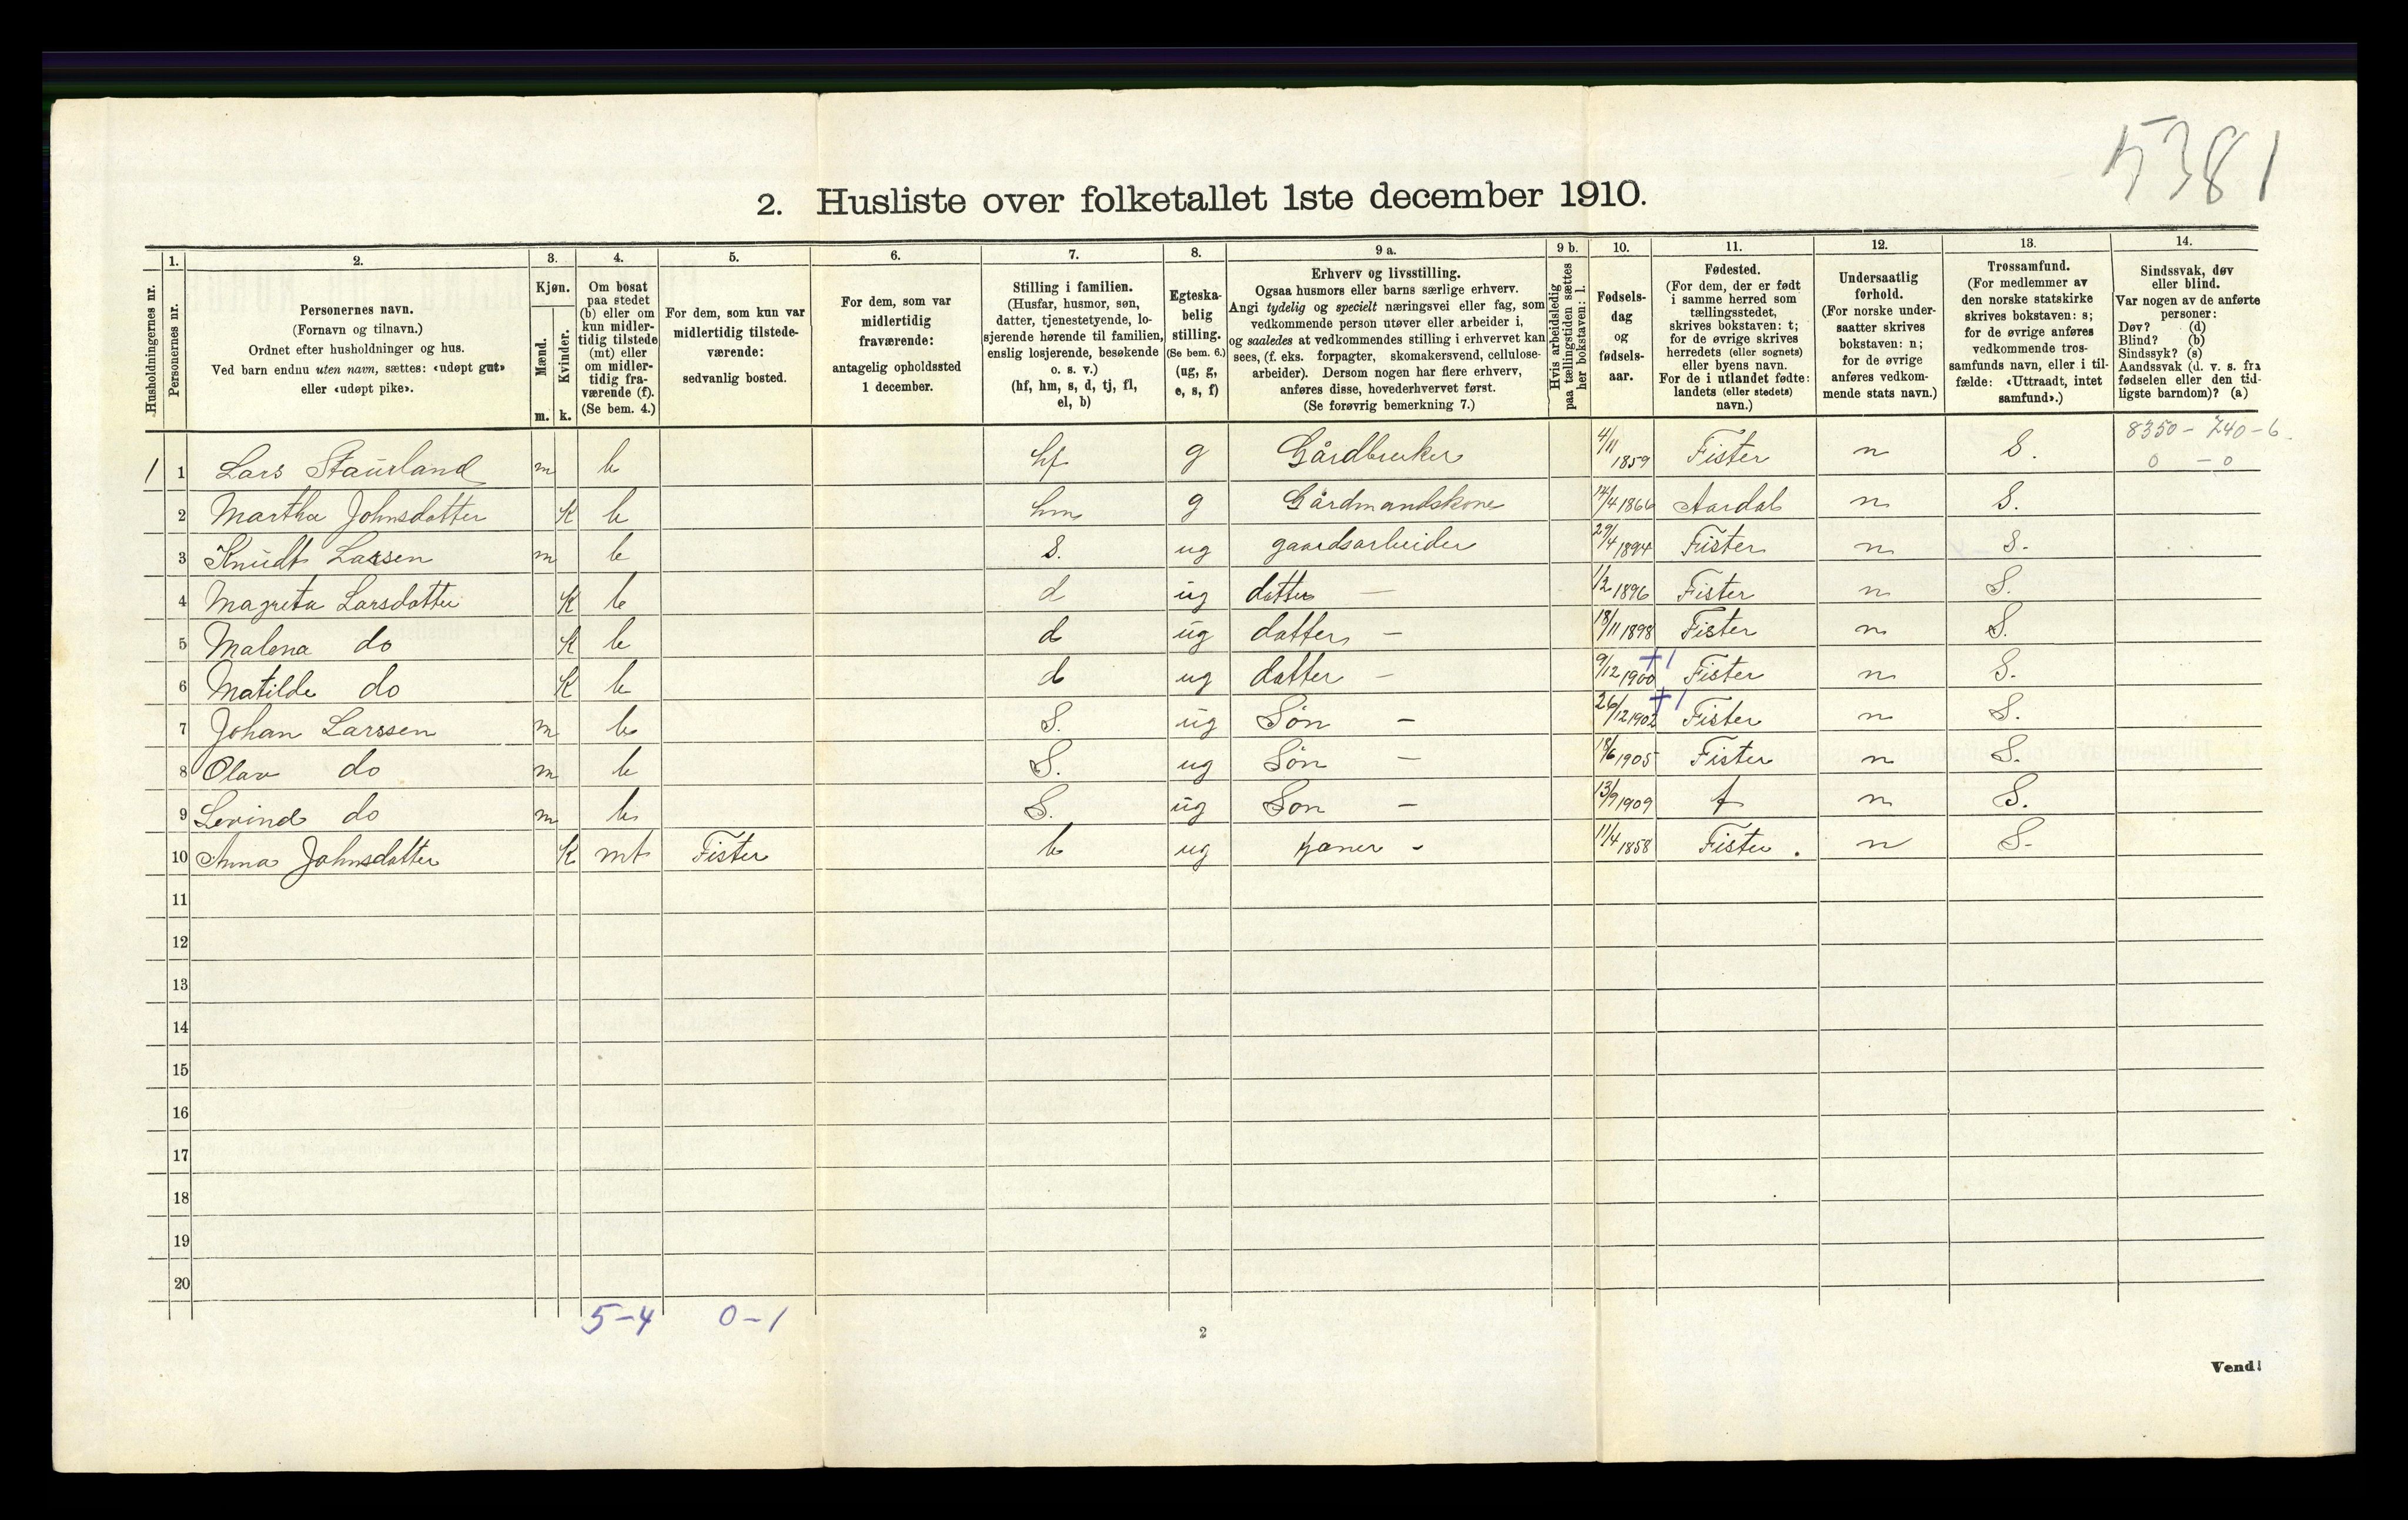 5381
2. Husliste over folketallet 1ste december 1910.
Husholdningernes nr.
1. Personernes nr.
2. Personernes navn. (Fornavn og tilnavn.) Ordnet efter husholdninger og hus. Ved barn endnu uten navn, sættes: «udøpt gut» eller «udøpt pike».
3. Kjøn. Mænd. m. Kvinder. k.
4. Om bosat paa stedet (b) eller om kun midlertidig tilstede (mt) eller om midlertidig fraværende (f). (Se bem. 4.)
5. For dem, som kun var midlertidig tilstedeværende: sedvanlig bosted.
6. For dem, som var midlertidig fraværende: antagelig opholdssted 1 december.
7. Stilling i familien. (Husfar, husmor, søn, datter, tjenestetyende, losjerende hørende til familien, enslig losjerende, besøkende o. s. v.) (hf, hm, s, d, tj, fl, el, b)
8. Egteskabelig stilling. (Se bem. 6.) (ug, g, e, s, f)
9 a. Erhverv og livsstilling. Ogsaa husmors eller barns særlige erhverv. Angi tydelig og specielt næringsvei eller fag, som vedkommende person utøver eller arbeider i, og saaledes at vedkommendes stilling i erhvervet kan sees, (f. eks. forpagter, skomakersvend, cellulosearbeider). Dersom nogen har flere erhverv, anføres disse, hovederhvervet først. (Se forøvrig bemerkning 7.)
9 b. Hvis arbeidsledig paa tællingstiden sættes her bokstaven: l.
10. Fødselsdag og fødselsaar.
11. Fødested. (For dem, der er født i samme herred som tællingsstedet, skrives bokstaven: t; for de øvrige skrives herredets (eller sognets) eller byens navn. For de i utlandet fødte: landets (eller stedets) navn.)
12. Undersaatlig forhold. (For norske undersaatter skrives bokstaven: n; for de øvrige anføres vedkommende stats navn.)
13. Trossamfund. (For medlemmer av den norske statskirke skrives bokstaven: s; for de øvrige anføres vedkommende trossamfunds navn, eller i tilfælde: «Uttraadt, intet samfund».)
14. Sindssvak, døv eller blind. Var nogen av de anførte personer: Døv? (d) Blind? (b) Sindssyk? (s) Aandssvak (d. v. s. fra fødselen eller den tidligste barndom)? (a)
8350 - 740 - 6
0 - 0
1 1 Lars Staurland m b hf g Gårdbruker 4/11 1859 Fister n S.
2 Martha Johnsdatter K b hm g Gårdmandskone 14/4 1866 Aardal n S.
3 Knudt Larsen m b S. ug gaardsarbeider 29/4 1894 Fister n S.
4 Magreta Larsdatter K b d ug datter — 1/2 1896 Fister n S.
5 Malena do K b d ug datter — 18/11 1898 Fister n S.
6 Matilde do K b d ug datter — 9/12 1900 +1 Fister n S.
7 Johan Larssen m b S. ug Søn — 26/12 1902 +1 Fister n S.
8 Olav do m b S. ug Søn — 18/6 1905 Fister n S.
9 Levind do m b S. ug Søn — 13/9 1909 t n S.
10 Anna Johnsdatter K mt Fister b ug - 11/4 1858 Fister . n S.
11
12
13
14
15
16
17
18
19
20
5-4 0-1
2
Vend!